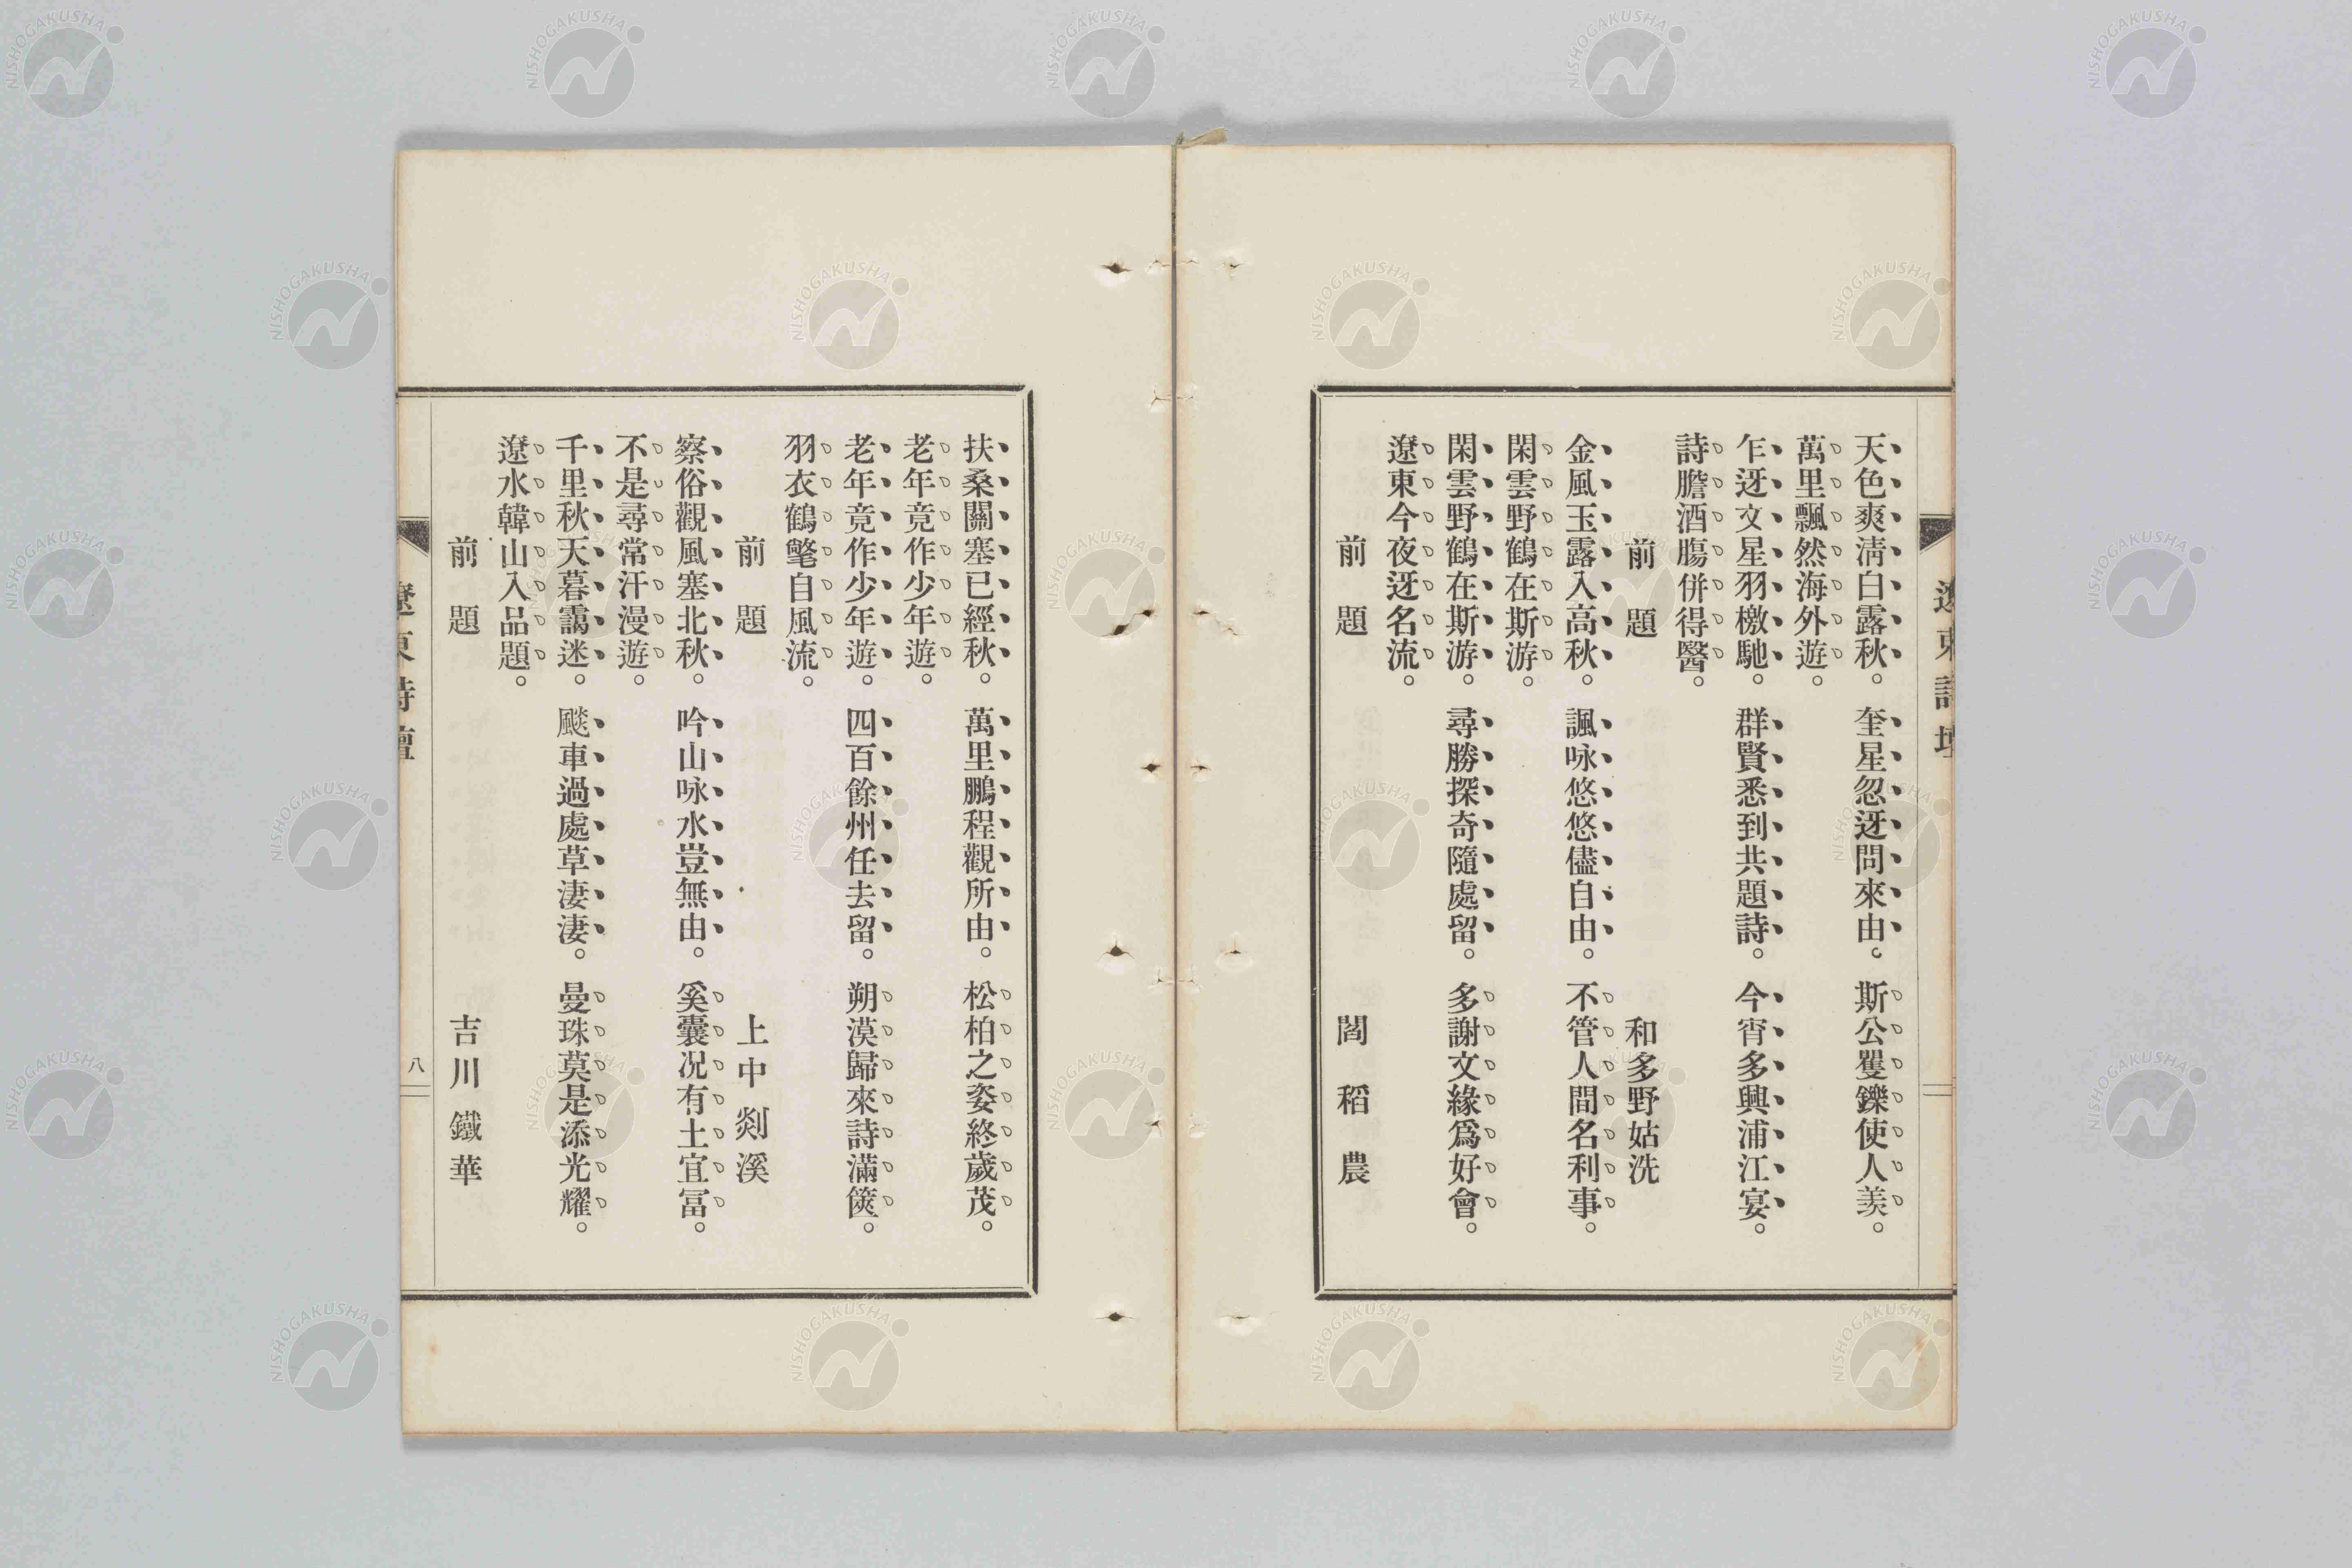 天色爽淸白露秋。奎星忽迓問來由。斯公矍鑠使人羡。
萬里飄然海外遊。
乍迓文星羽檄馳。群賢悉到共題詩。今宵多興浦江宴。
詩膽酒膓併得醫。
前題 和多野姑洗
金風玉露入高秋。諷咏悠悠儘自由。不管人間名利事。
閑雲野鶴在斯游。
閑雲野鶴在斯游。尋勝探奇隨處留。多謝文緣爲好會。
遼東今夜迓名流。
前題 閻稻農
扶桑關塞已經秋。萬里鵬程觀所由。松柏之姿終歲茂。
老年竟作少年遊。
老年竟作少年遊。四百餘州任去留。朔漠歸來詩滿篋。
羽衣鶴氅自風流。
前題 上中剡溪
察俗觀風塞北秋。吟山咏水豈無由。奚囊況有土宜冨。
不是尋常汗漫遊。
千里秋天暮靄迷。飈車過處草淒淒。曼珠莫是添光耀。
遼水韓山入品題。
前題 吉川鐵華
遼東詩壇
八
遼東詩壇
NISHOGAKUSHA